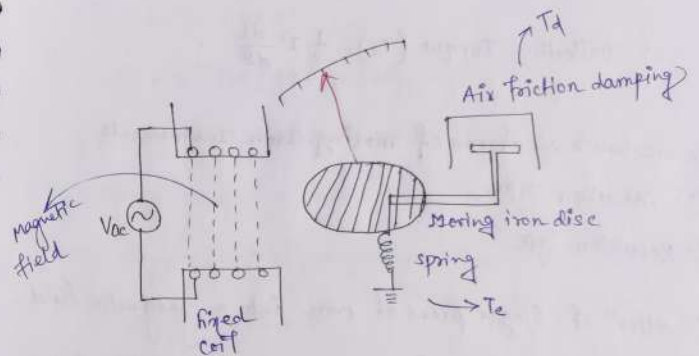 Td
Air friction damping
Vac
Magnetic
field
Moving iron disc
spring
Tc
fixed
coil